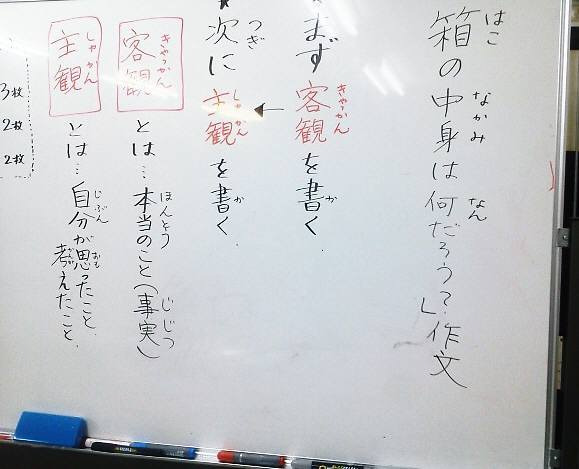 箱の中身は何だろう？」作文
はこ
なかみ
なん
★まず客観を書く.
きゃっかん
か
★次に主観を書く.
つぎ
しゅかん
か
客観とは…本当のこと(事実)
きゃっかん
ほんとう
じじつ
主観とは…自分が思ったこと.
しゅかん
じぶん
おも
考えたこと.
かんが
3枚
2枚
2枚